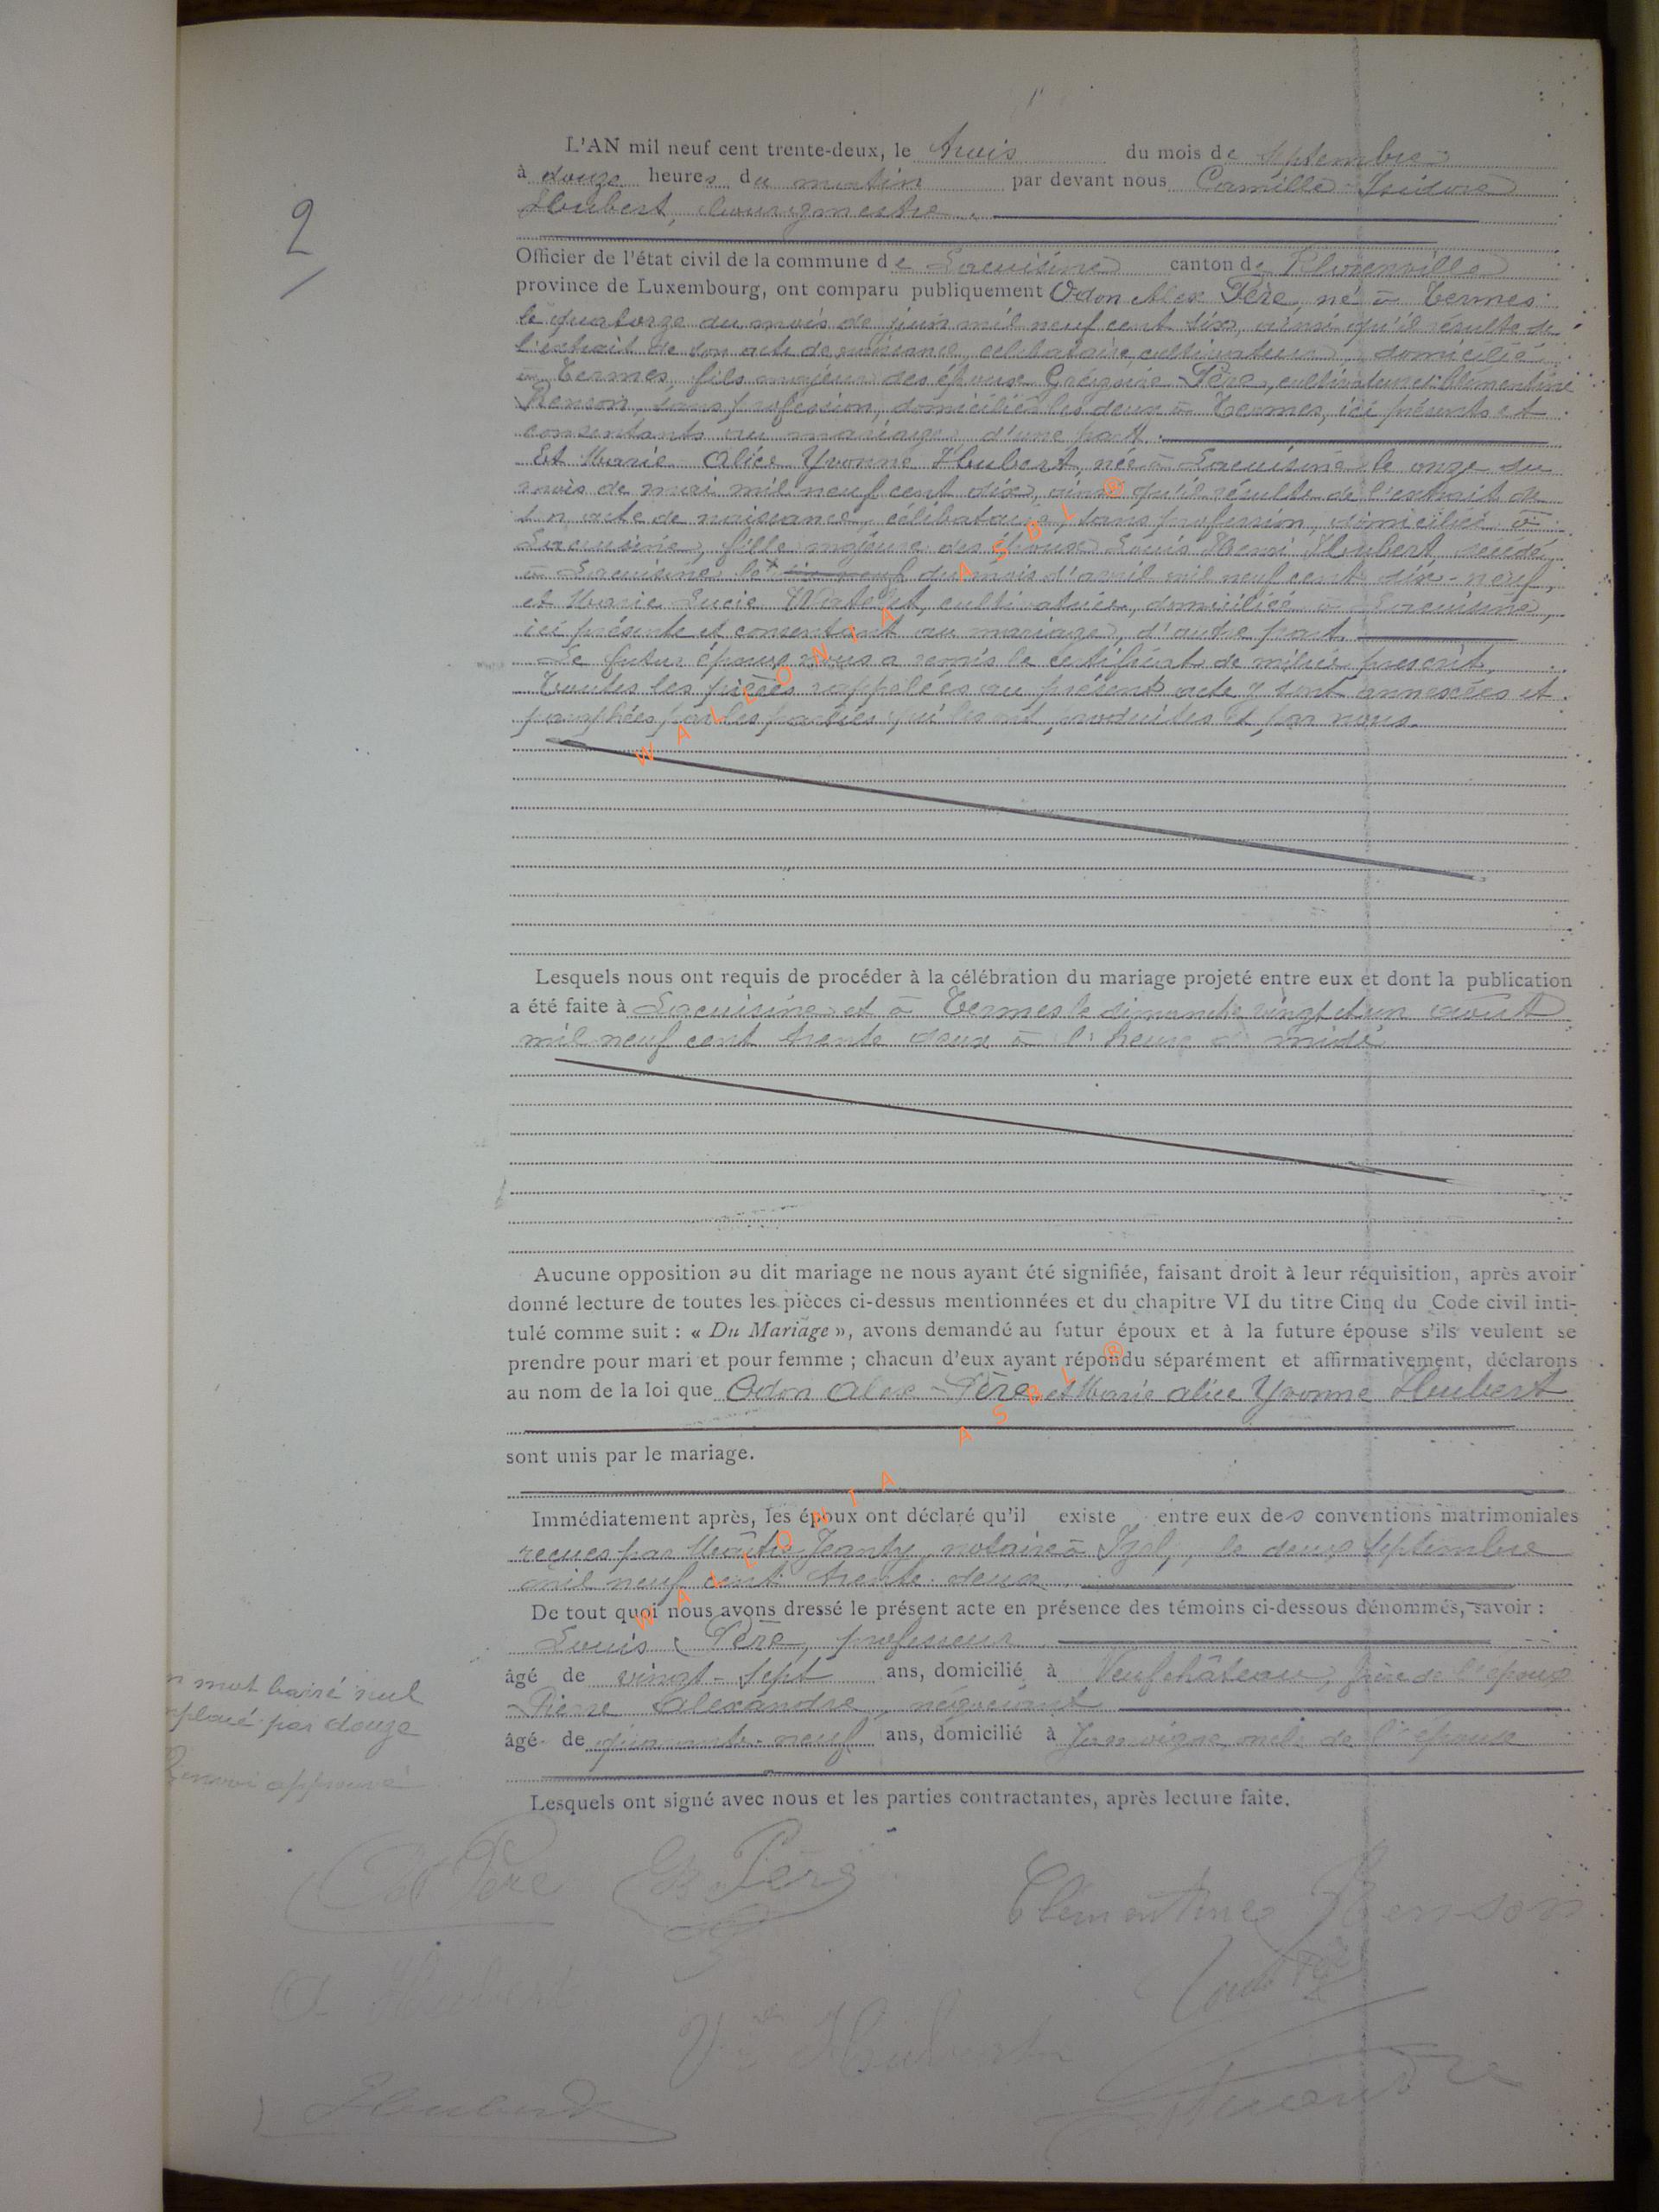 L'AN mil neuf cent trente-deux, le trois du mois de septembre
à douze heures du matin par devant nous Camille Isidore
Hubert, bourgmestre.
2
Officier de l'état civil de la commune de Lacuisine canton de Florenville
province de Luxembourg, ont comparu publiquement Odon Alex Père, né à Termes
le quatorze du mois de juin mil neuf cent six, ainsi qu'il résulte de
l'extrait de son acte de naissance, célibataire, cultivateur, domicilié
à Termes, fils majeur des époux Grégoire Père, cultivateur et Clémentine
Henson, sans profession, domiciliés les deux à Termes, ici présents et
consentants au mariage, d'une part.
Et Marie Alice Yvonne Hubert, née à Lacuisine le onze du
mois de mai mil neuf cent dix, ainsi qu'il résulte de l'extrait de
son acte de naissance, célibataire, sans profession, domiciliée à
Lacuisine, fille majeure des époux Louis Henri Hubert, décédé
à Lacuisine le dix-neuf du mois d'avril mil neuf cent dix-neuf,
et Marie Lucie cultivatrice, domiciliée à Lacuisine,
ici présente et consentant au mariage, d'autre part.
Le futur époux nous a remis le certificat de milice prescrit.
Toutes les pièces rappelées au présent acte y sont annexées et
paraphées par les parties qui les ont produites et par nous.
WALLONIA ASBL ®
Lesquels nous ont requis de procéder à la célébration du mariage projeté entre eux et dont la publication
a été faite à Lacuisine et à Termes le dimanche vingt et un août
mil neuf cent trente deux à l'heure de midi
Aucune opposition au dit mariage ne nous ayant été signifiée, faisant droit à leur réquisition, après avoir
donné lecture de toutes les pièces ci-dessus mentionnées et du chapitre VI du titre Cinq du Code civil inti-
tulé comme suit : « Du Mariage », avons demandé au futur époux et à la future épouse s'ils veulent se
prendre pour mari et pour femme ; chacun d'eux ayant répondu séparément et affirmativement, déclarons
au nom de la loi que Odon Alex Père et Marie Alice Yvonne Hubert
sont unis par le mariage.
WALLONIA ASBL ®
Immédiatement après, les époux ont déclaré qu'il existe entre eux des conventions matrimoniales
reçues par Maître Jeanty, notaire à Izel, le deux septembre
mil neuf cent trente deux.
De tout quoi nous avons dressé le présent acte en présence des témoins ci-dessous dénommés, savoir :
Louis Père, professeur
âgé de vingt-sept ans, domicilié à Neufchâteau, frère de l'époux
Pierre Alexandre, négociant
âgé de neuf ans, domicilié à Jamoigne, oncle de l'épouse
n mot barré nul
mplacé par douze
Renvoi approuvé
Lesquels ont signé avec nous et les parties contractantes, après lecture faite.
O Père G Père Clémentine Henson
A Hubert Louis Père
Vve Hubert
Hubert Alexandre